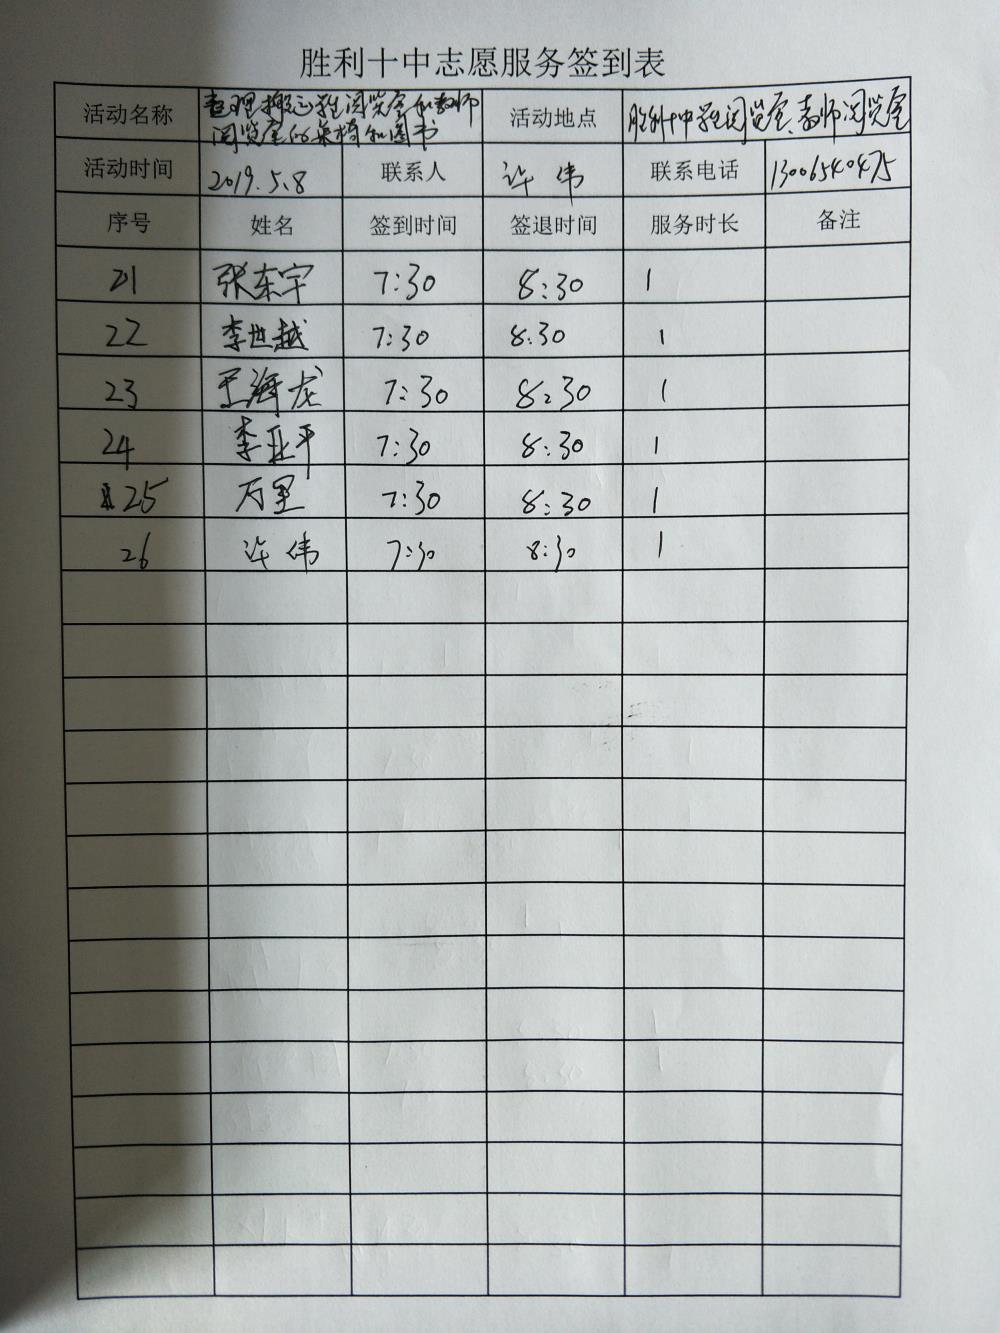 胜利十中志愿服务签到表
活动名称 整理搬运学生阅览室和教师 活动地点 胜利十中学生阅览室、教师阅览室
阅览室的桌椅和图书
活动时间 2019.5.8 联系人 许伟 联系电话 13006540475
序号 姓名 签到时间 签退时间 服务时长 备注
21 张东宇 7:30 8:30 1
22 李世越 7:30 8:30 1
23 王海龙 7:30 8:30 1
24 李亚平 7:30 8:30 1
25 万里 7:30 8:30 1
26 许伟 7:30 8:30 1